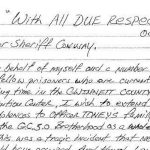 "With ALL DUE RESPEC
Sheriff Conway,
behalf of myself and a number
fellow prisoners who are current
ing time in the GWINNETT County
ntion Center, I wish to extend
dolences to Officer Toney's family
the G.C.S.O Brotherhood as a whole
his was a tragic incident that no